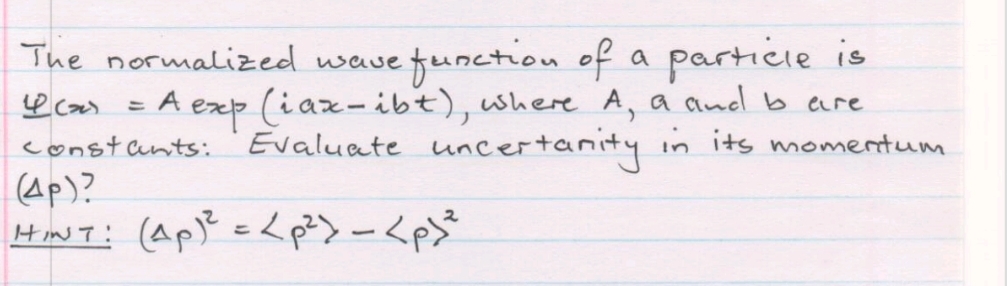 The normalized wavefunction of a particle is
Ψ(x) = A exp (iax-ibt), where A, a and b are
constants: Evaluate uncertanity in its momentum
(Δp)?
HINT: (Δp)² = <p²> - <p>²